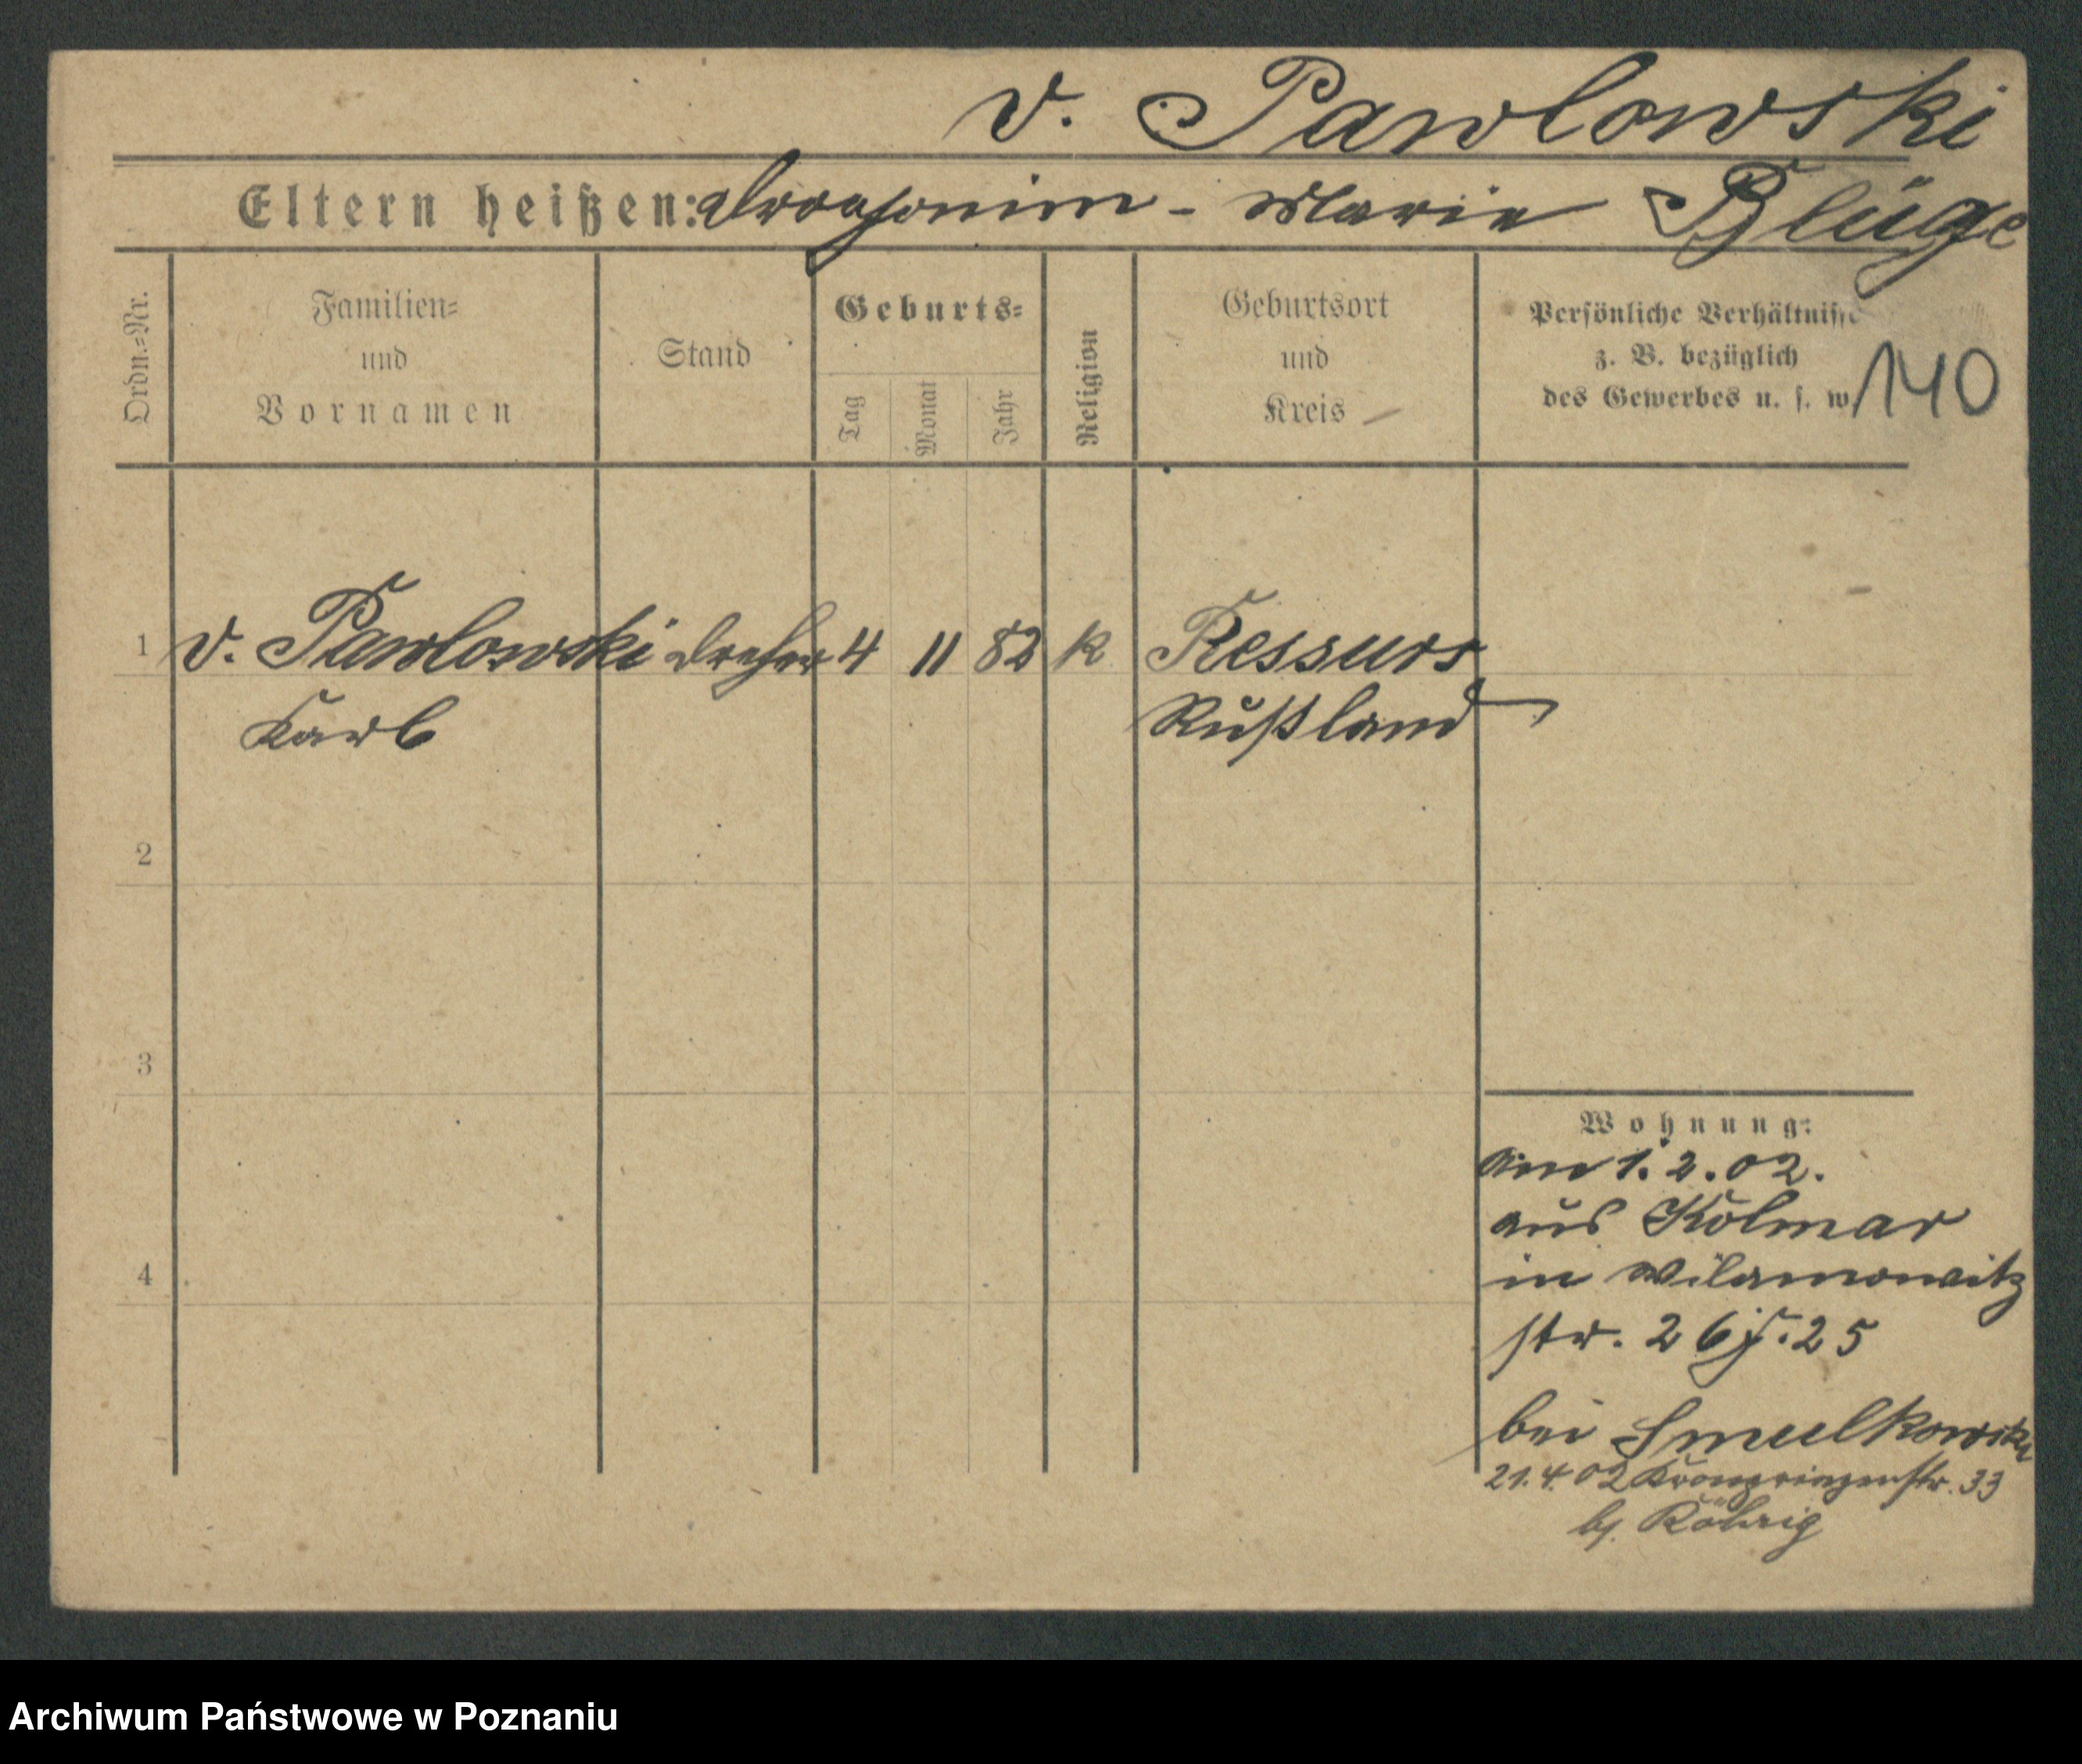 v. Pawlowski
Eltern heißen: - Marie Plüge
Ordn.-Nr.
Familien-
und
Vornamen
Stand
Geburts-
Tag
Monat
Jahr
Religion
Geburtsort
und
Kreis
Persönliche Verhältnisse
z. B. bezüglich
des Gewerbes u. s. w.
140
1 v. Pawlowski Dreher 4 11 82 k Ressurs
Karl Rußland
2
3
4
Wohnung:
am 1.2.02.
aus Kolmar
in Wilamowitz
str. 26 25
bei Smulkowski
21.4.02 Kronprinzenstr. 33
bj. Röhrig
Archiwum Państwowe w Poznaniu